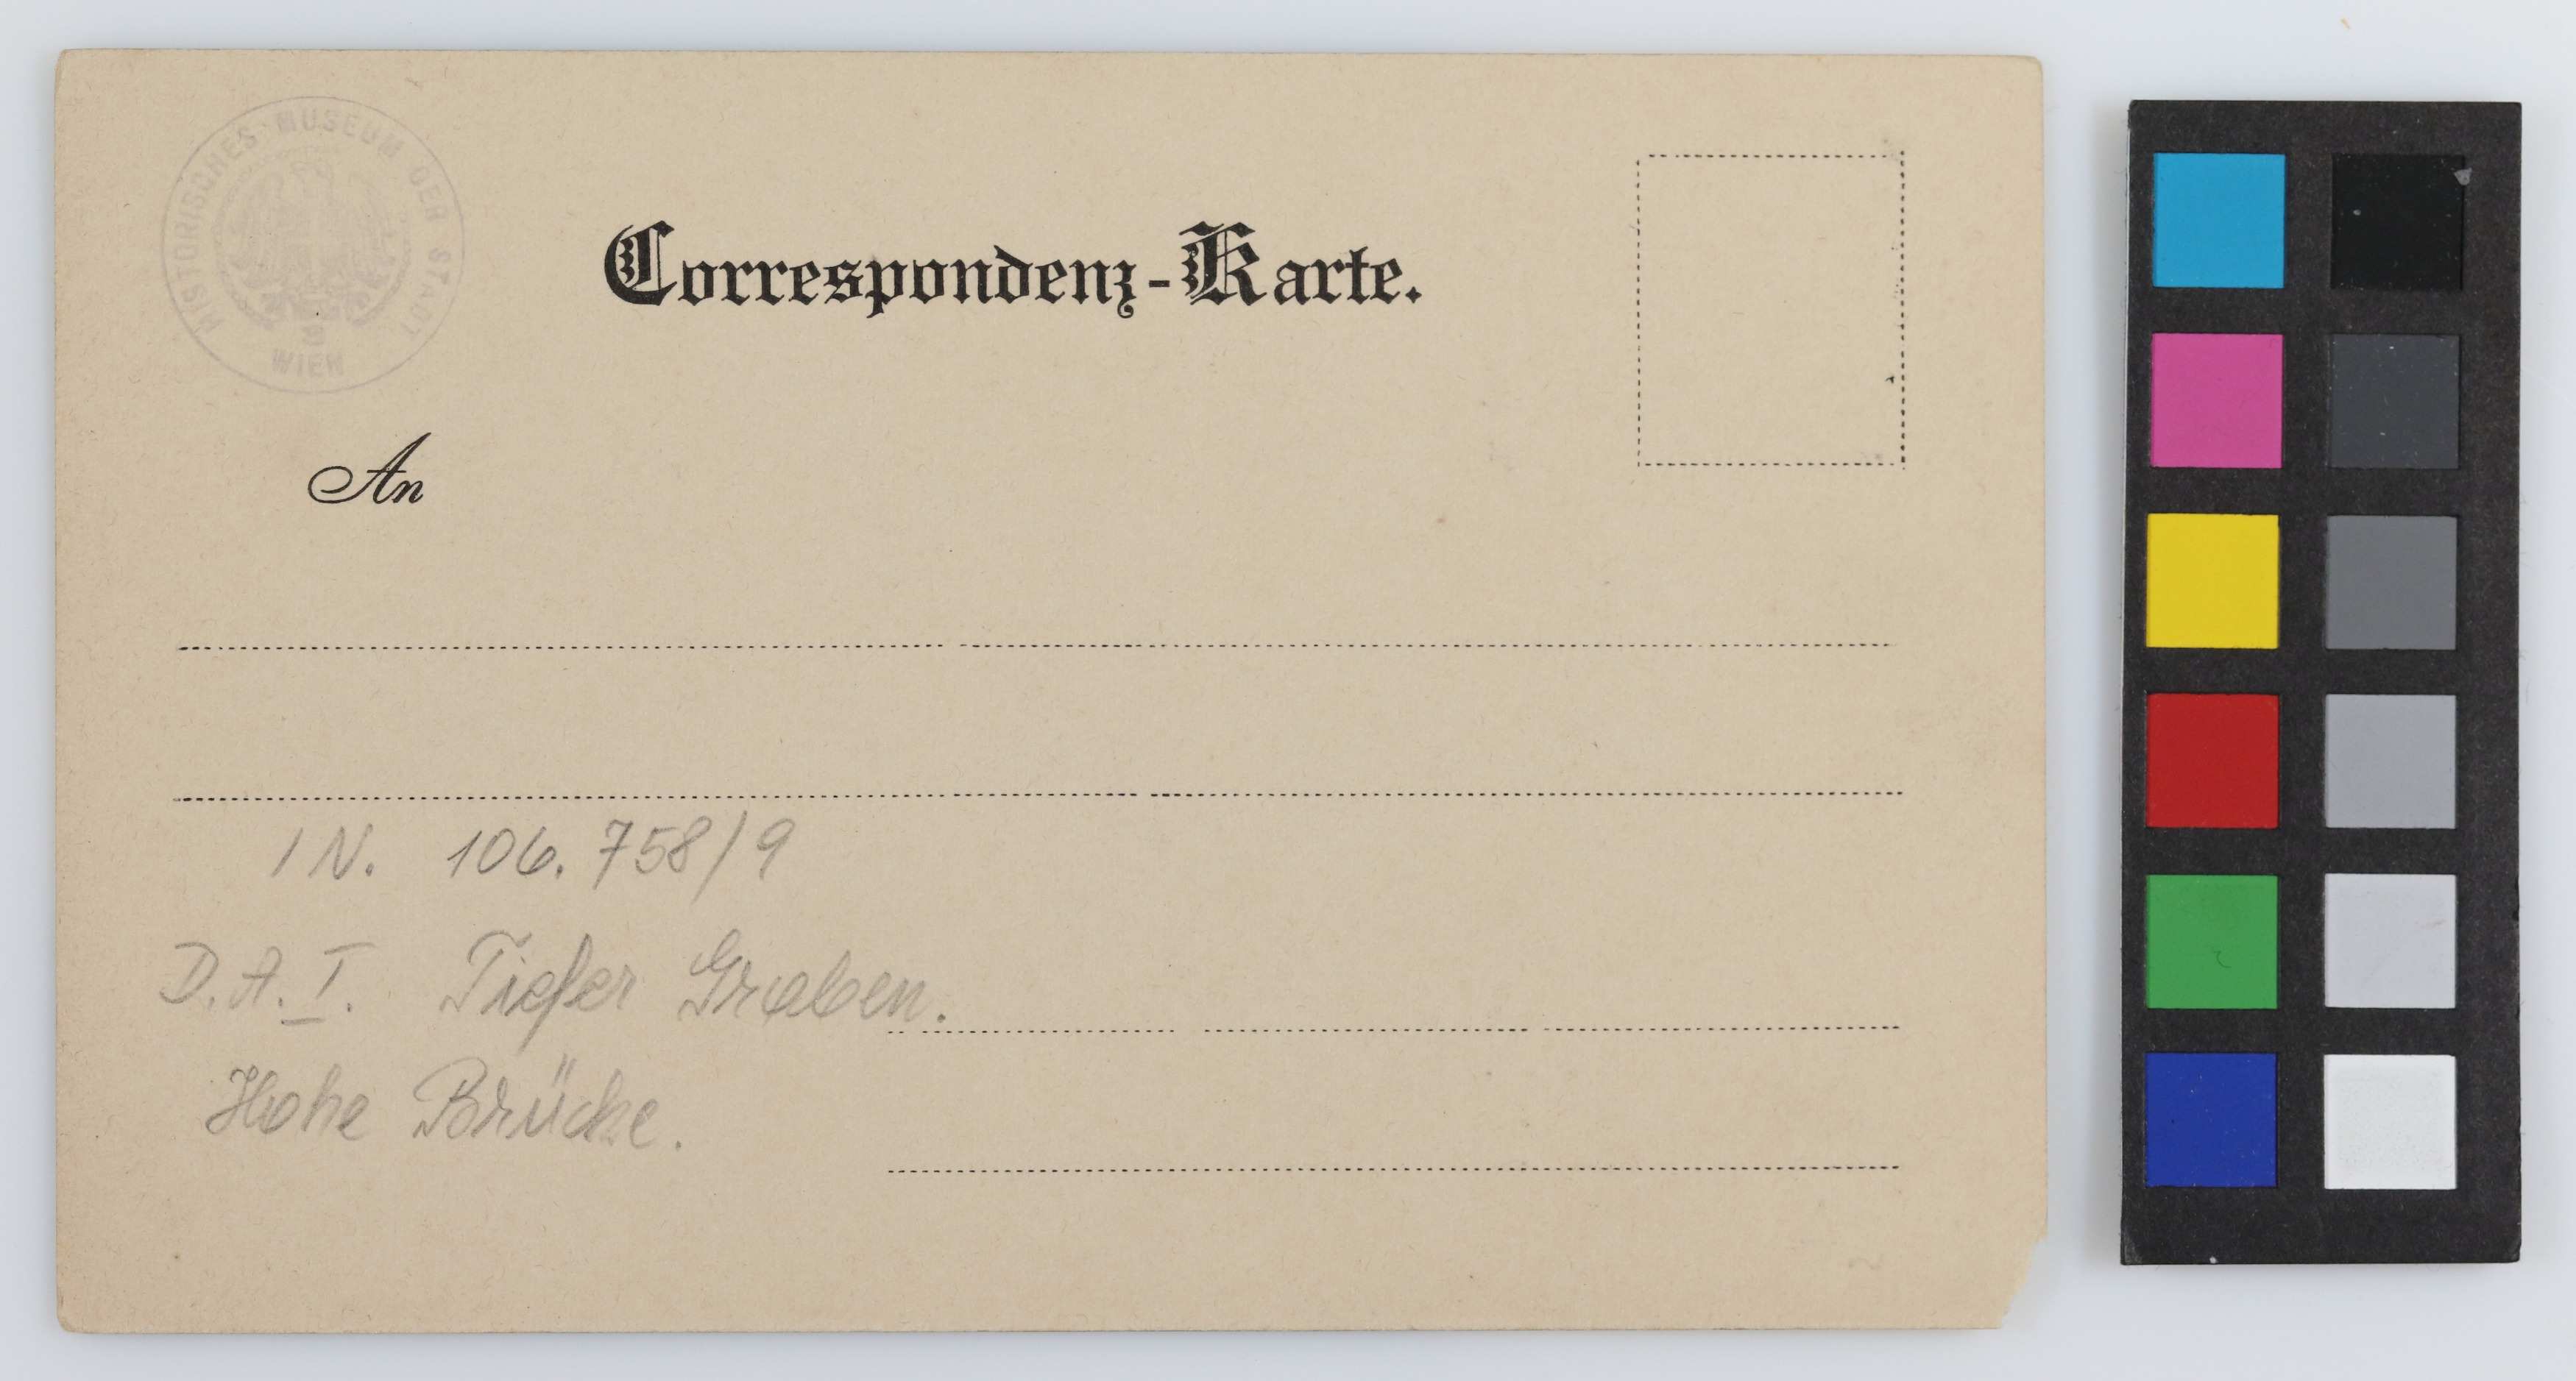 HISTORISCHES MUSEUM DER STADT
WIEN
Correspondenz-Karte.
An
IN. 106.758/9
D.A.I. Tiefer Graben.
Hohe Brücke.